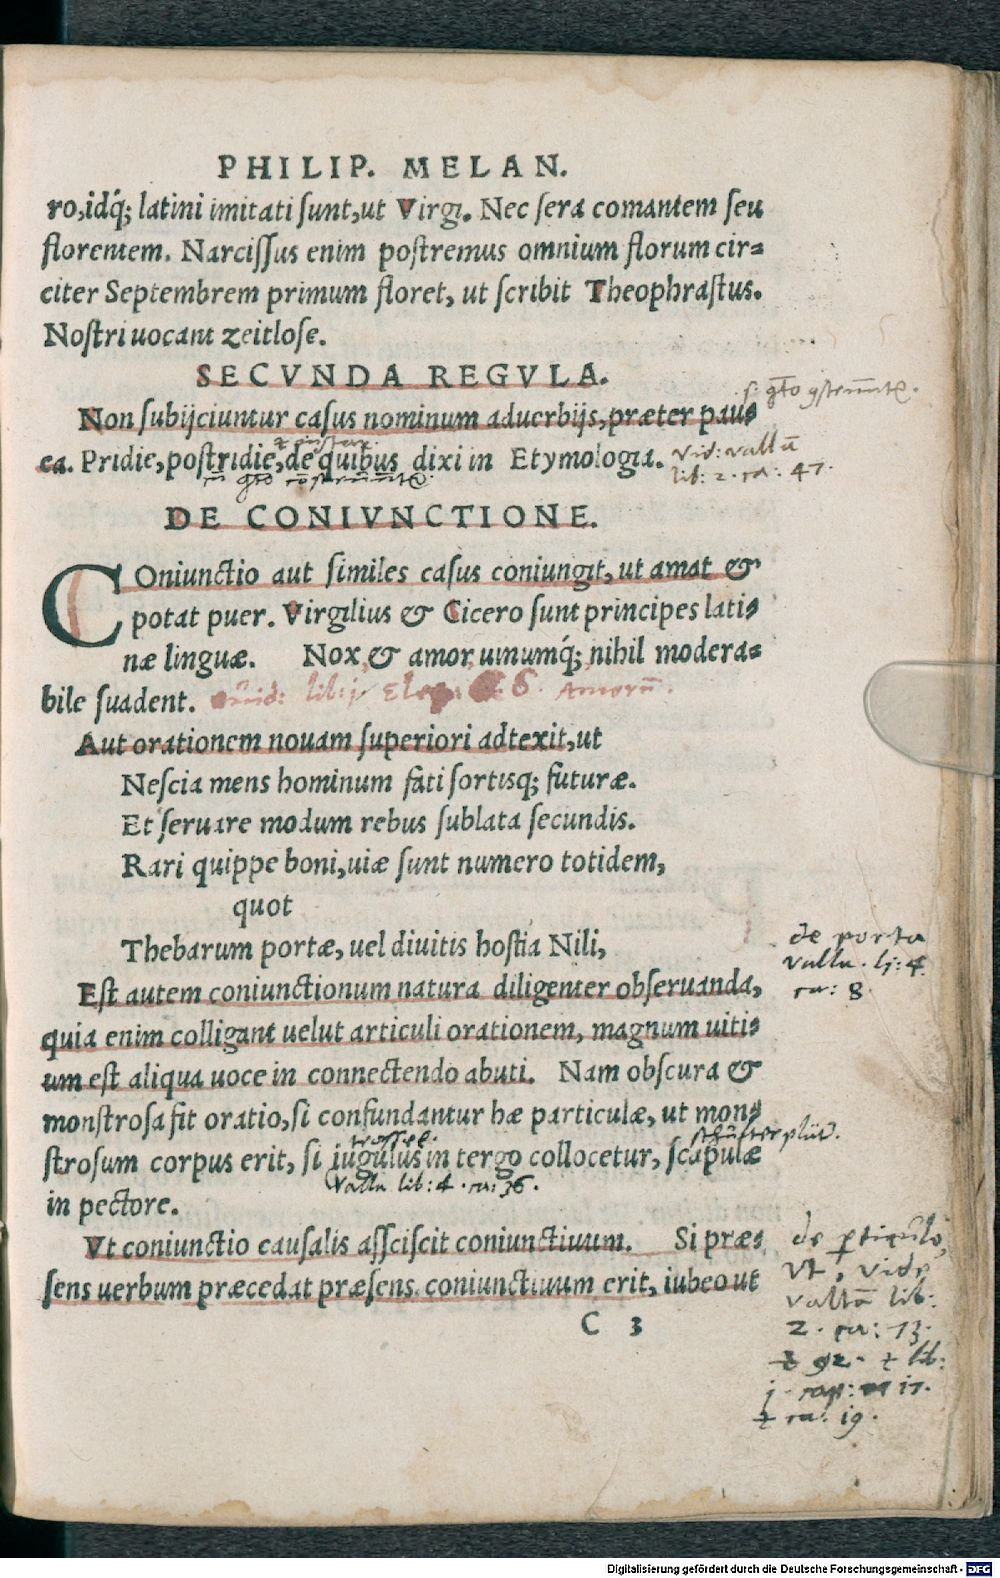 PHILIP. MELAN.
ro, idq́; latini imitati sunt, ut Virgi. Nec sera comantem seu
florentem. Narcissus enim postremus omnium florum cir=
citer Septembrem primum floret, ut scribit Theophrastus.
Nostri uocant zeitlose.
SECVNDA REGVLA.
Non subijciuntur casus nominum aduerbijs, præter pau=
ca. Pridie, postridie, de quibus dixi in Etymologia.
vid: vallā
lib: 2. ca: 47.
DE CONIVNCTIONE.
COniunctio aut similes casus coniungit, ut amat &
potat puer. Virgilius & Cicero sunt principes lati=
næ linguæ. Nox & amor uinumq́; nihil modera=
bile suadent.
Aut orationem nouam superiori adtexit, ut
Nescia mens hominum fati sortisq; futuræ.
Et seruare modum rebus sublata secundis.
Rari quippe boni, uiæ sunt numero totidem,
quot
Thebarum portæ, uel diuitis hostia Nili,
de porta
valla. li: 4.
ca: 8.
Est autem coniunctionum natura diligenter obseruanda,
quia enim colligant uelut articuli orationem, magnum uiti=
um est aliqua uoce in connectendo abuti. Nam obscura &
monstrosa fit oratio, si confundantur hæ particulæ, ut mon=
strosum corpus erit, si iugulus in tergo collocetur, scapulæ
valla lib: 4. ca: 36.
in pectore.
Vt coniunctio causalis assciscit coniunctiuum. Si præ=
sens uerbum præcedat præsens coniunctiuum erit, iubeo ut
C 3
vt, vide
vallā lib:
2. ca: 13.
ca: 19.
Digitalisierung gefördert durch die Deutsche Forschungsgemeinschaft - DFG